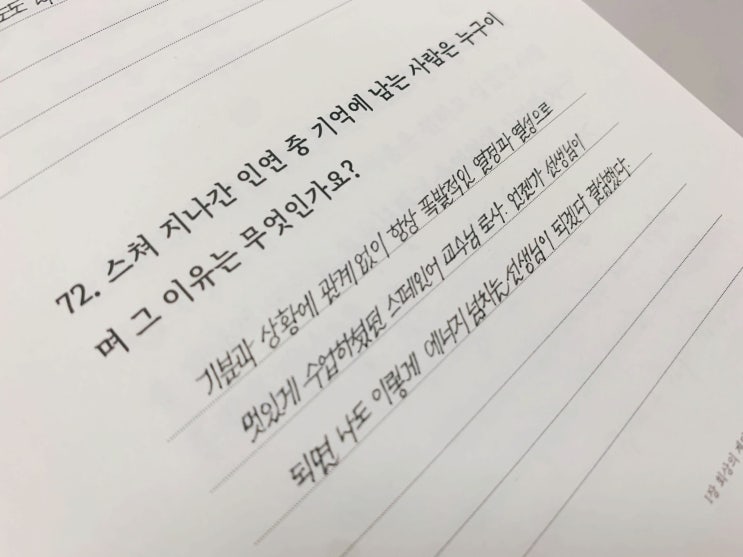 72. 스쳐 지나간 인연 중 기억에 남는 사람은 누구이
며 그 이유는 무엇인가요?
기분과 상황에 관계 없이 항상 폭발적인 열정과 열성으로
멋있게 수업하셨던 스페인어 교수님 로사. 언젠가 선생님이
되면 나도 이렇게 에너지 넘치는 선생님이 되겠다 결심했다.
1장 회상의